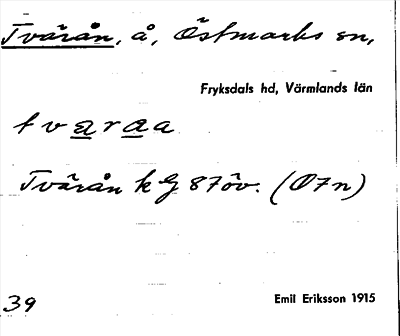 Tvärån, å, Östmarks sn,
Fryksdals hd, Värmlands län
tvaraa
Tvärån kG 87öv. (O7n)
39
Emil Eriksson 1915